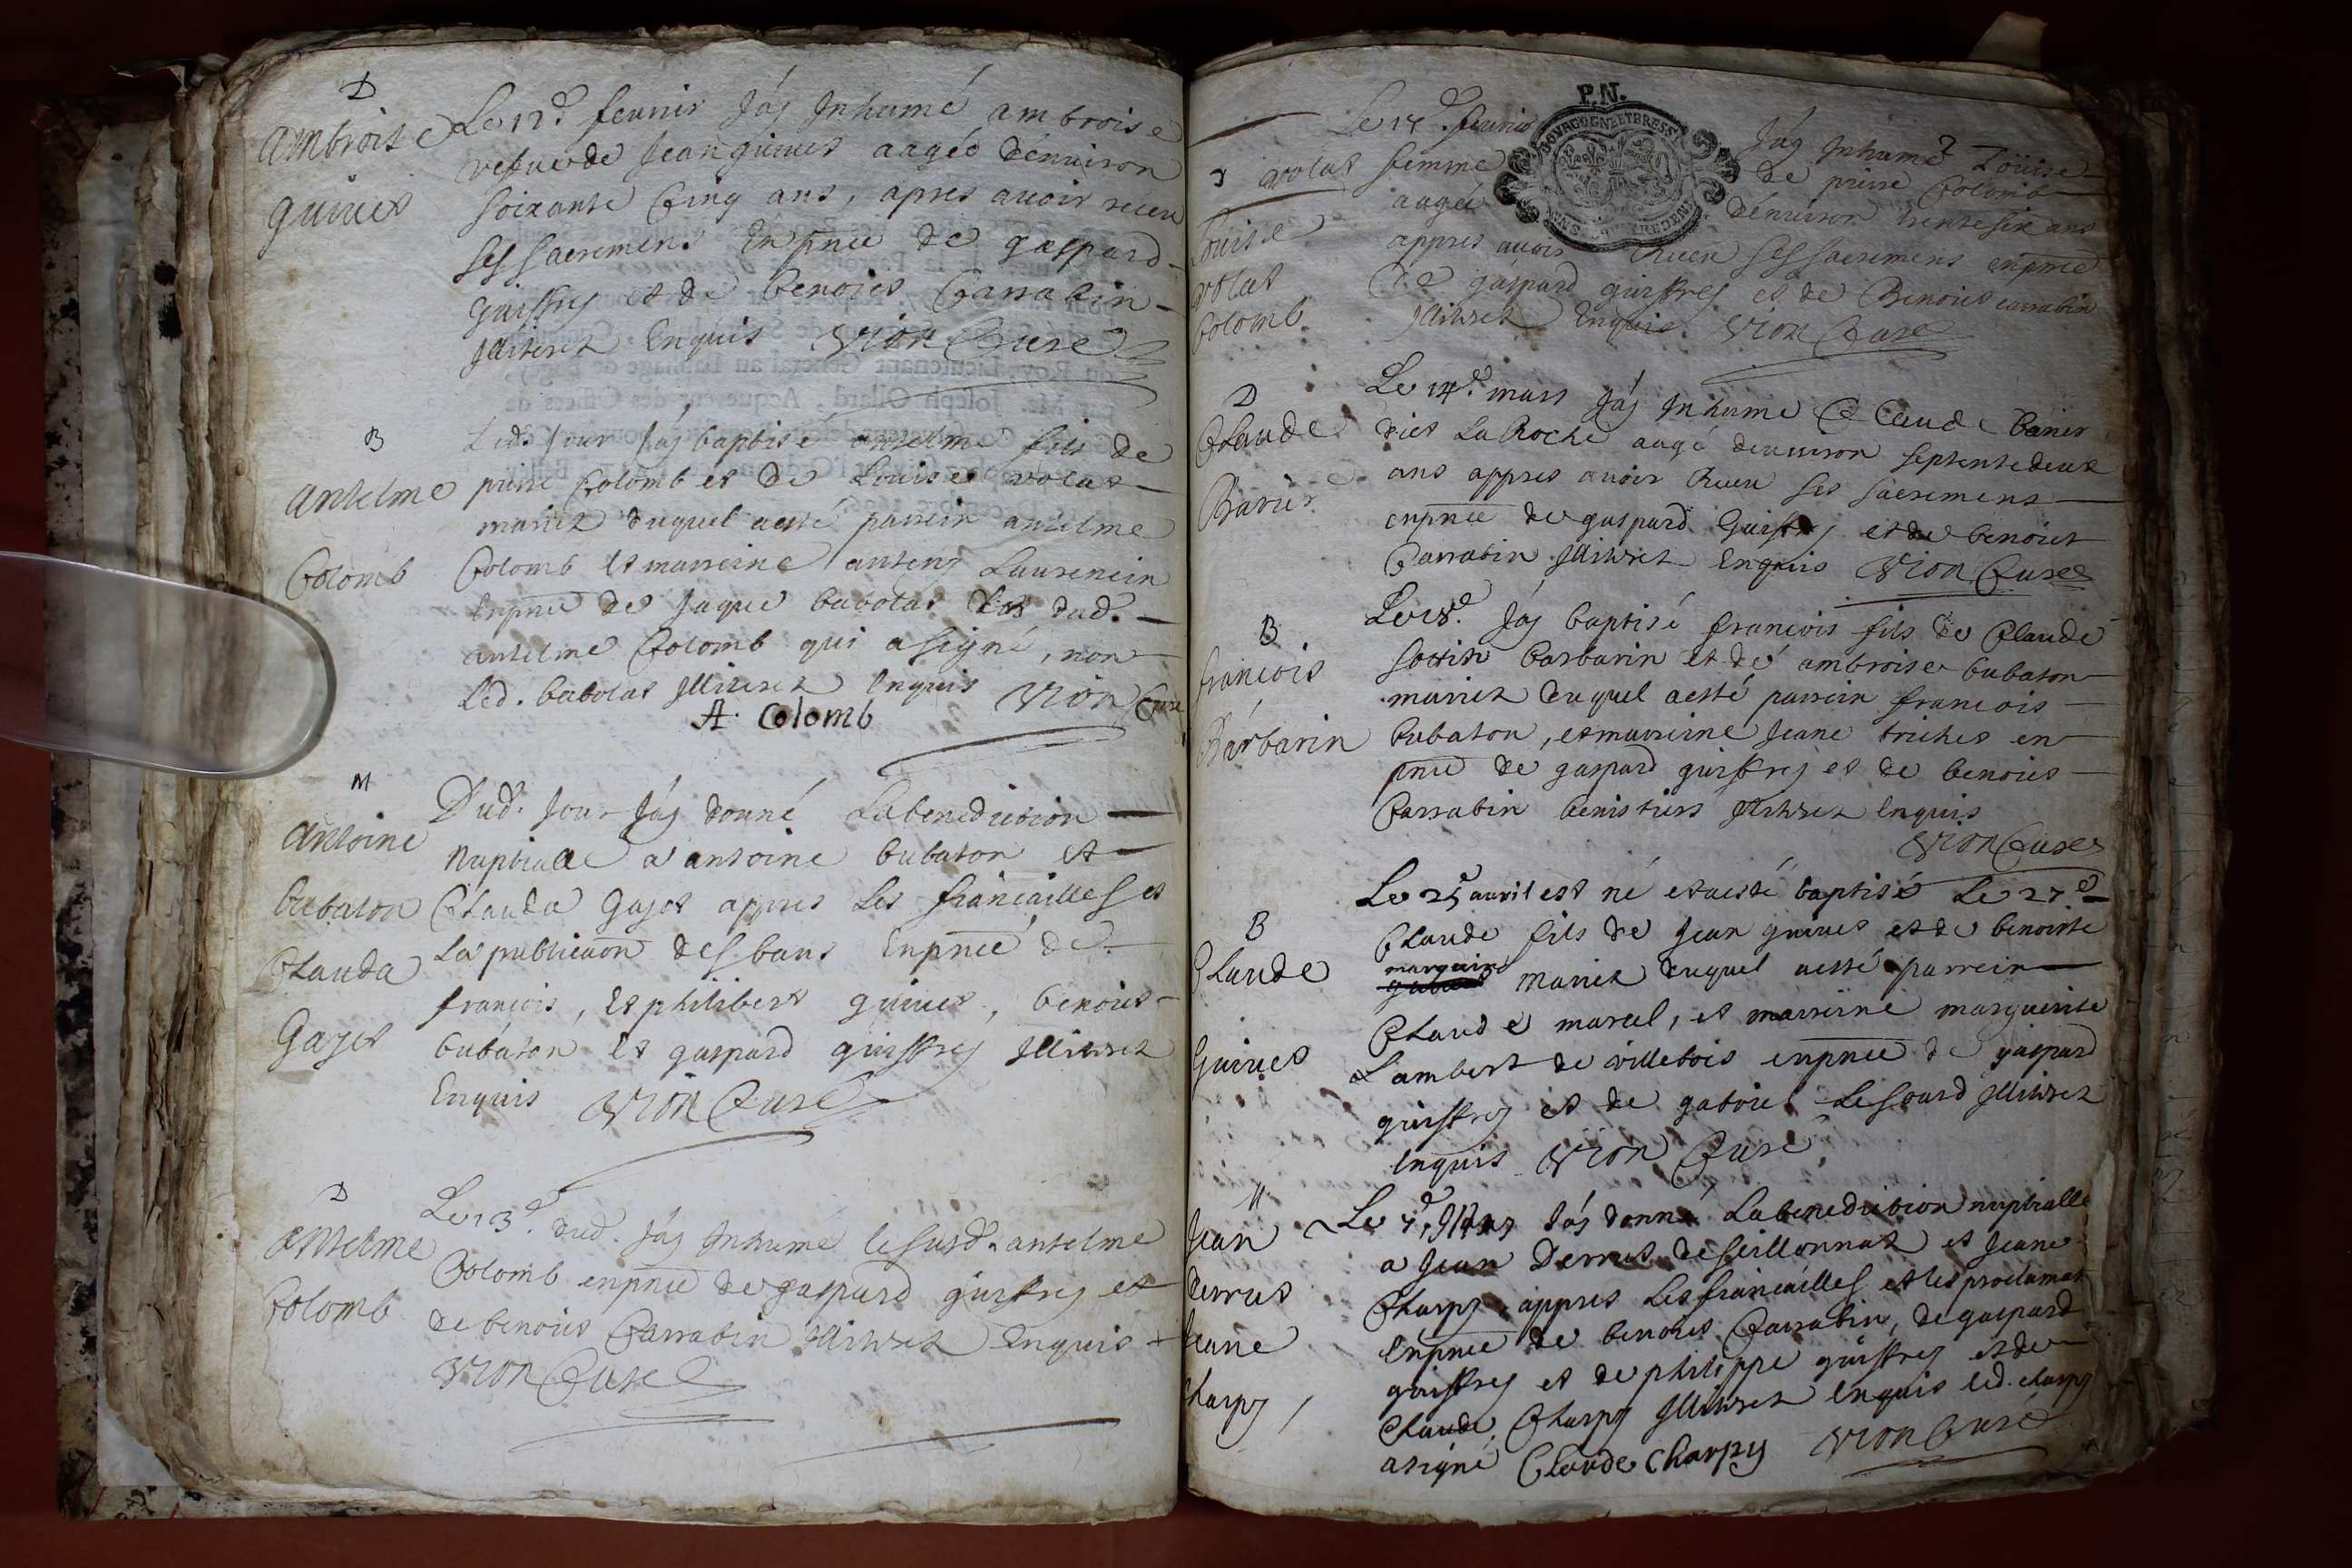 D
Ambroise
guiuet
Le 12.e feurier J'ay Inhumé ambroise
vefue de Jean guiuet aagée d'enuiron
soixante Cinq ans, apres auoir receu
ses sacremens En pnce de gaspard
guiffrey et de benoict Carrabin
Illiterez Enquis Vion Curé
B
Antelme
Colomb
Led. Jour J'ay baptisé antelme fils de
pierre Colomb et de Louise volat
mariez duquel a esté parrein antelme
Colomb et marreine anteny Laurencin
En pnce de Jaque babolat et dud.
antelme Colomb qui a signé, non
Led. babolat Illiterez Enquis Vion Curé
A. Colomb
M
Antoine
bubaton
Clauda
Gajet
Dud. Jour J'ay donné La benediction
Nuptialle a antoine bubaton et
Clauda Gajet appres Les fiancailles et
La publicaon des bans En pnce de
francois, et philibert guiuet, benoict
bubaton et gaspard guiffrey Illiterez
Enquis Vion Curé
D
Antelme
Colomb
Le 13.e dud. J'ay Inhumé le susd. antelme
Colomb en pnce de gaspard guiffrey et
de benoict Carrabin Illiterez Enquis
Vion Curé
P.N.
volat
Louise
volat
Colomb
Le 17.e feurier J'ay Inhumé Louise
volat femme de pierre Colomb
aagée d'enuiron trente six ans
appres auoir Receu ses sacremens en pnce
de gaspard guiffrey et de Benoict carrabin
Illiterez Enquis Vion Curé
D
Claude
Barier
Le 14.e mars J'ay Inhumé Claude barier
dict La Roche aagé d'enuiron septente deux
ans appres auoir Receu ses sacremens
en pnce de gaspard Guiffrey et de benoict
Carrabin Illiterez Enquis Vion Curé
B
francois
Barbarin
Le 18.e J'ay baptisé francois fils de Claude
barbarin et de ambroise bubaton
mariez duquel a esté parrein francois
bubaton, et marreine Jeane triches en
pnce de gaspard guiffrey et de benoict
Carrabin benistiers Illiterez Enquis
Vion Curé
B
Claude
Guiuet
Le 25 auril est né et a esté baptisé Le 27.e
Claude fils de Jean guiuet et de benoiste
marguin mariez duquel a esté parrein
Claude marcel, et marreine marguerite
Lambert de villebois en pnce de gaspard
guiffrey et de gabriel Lesourd Illiterez
Enquis Vion Curé
M
Jean
derruet
Jeane
Charpy
J'ay donné La benediction nuptialle
a Jean Derruet de seillonnaz et Jeane
Charpy, appres Les fiancailles et les proclamat
En pnce de benoict Carrabin, de gaspard
guiffrey et de philippe guiffrey et de
Claude Charpy Illiterez Enquis led. charpy
a signé Claude Charpy Vion Curé